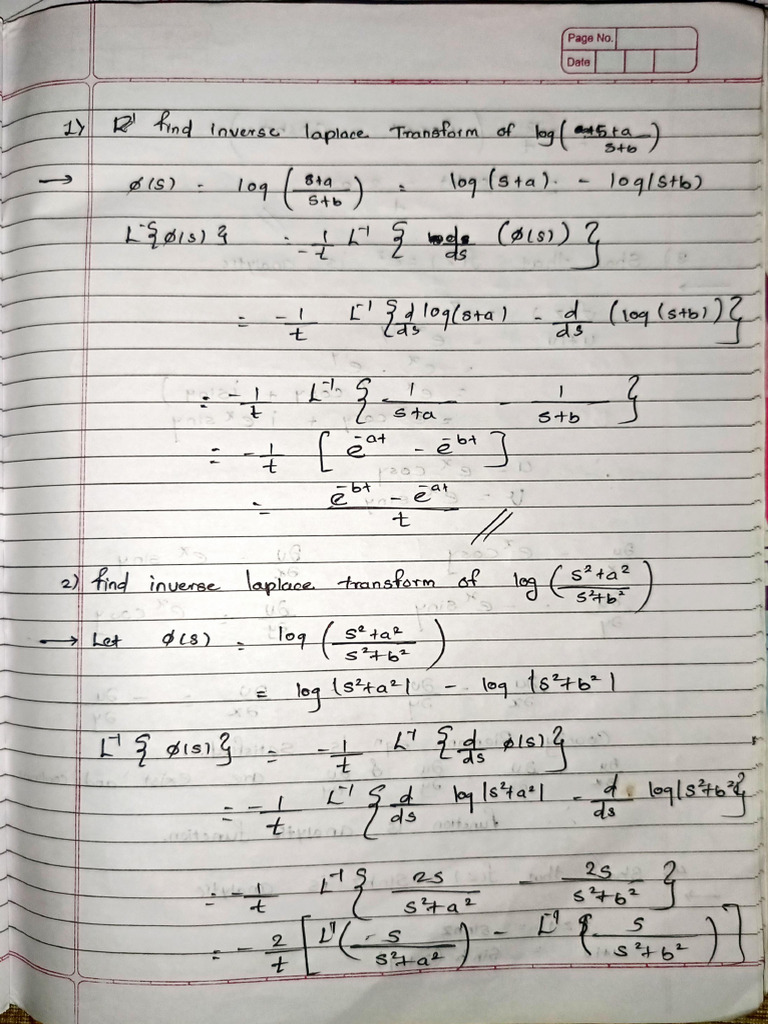 Page No.
Date
1) find inverse laplace Transform of log(s+a/s+b)
→ φ(s) = log (s+a/s+b) = log (s+a) - log(s+b)
L⁻{φ(s)} = -1/t L⁻¹ { d/ds (φ(s)) }
= -1/t L⁻¹ { d/ds log(s+a) - d/ds (log (s+b)) }
= -1/t L⁻¹ { 1/s+a - 1/s+b }
= -1/t [ e⁻ᵃᵗ - e⁻ᵇᵗ ]
= e⁻ᵇᵗ - e⁻ᵃᵗ / t //
2) find inverse laplace transform of log (s²+a²/s²+b²)
→ Let φ(s) = log (s²+a²/s²+b²)
= log |s²+a²| - log |s²+b²|
L⁻¹ { φ(s) } = -1/t L⁻¹ { d/ds φ(s) }
= -1/t L⁻¹ { d/ds log |s²+a²| - d/ds log|s²+b²| }
= -1/t L⁻¹ { 2s/s²+a² - 2s/s²+b² }
= -2/t [ L⁻¹ (s/s²+a²) - L⁻¹ (s/s²+b²) ]